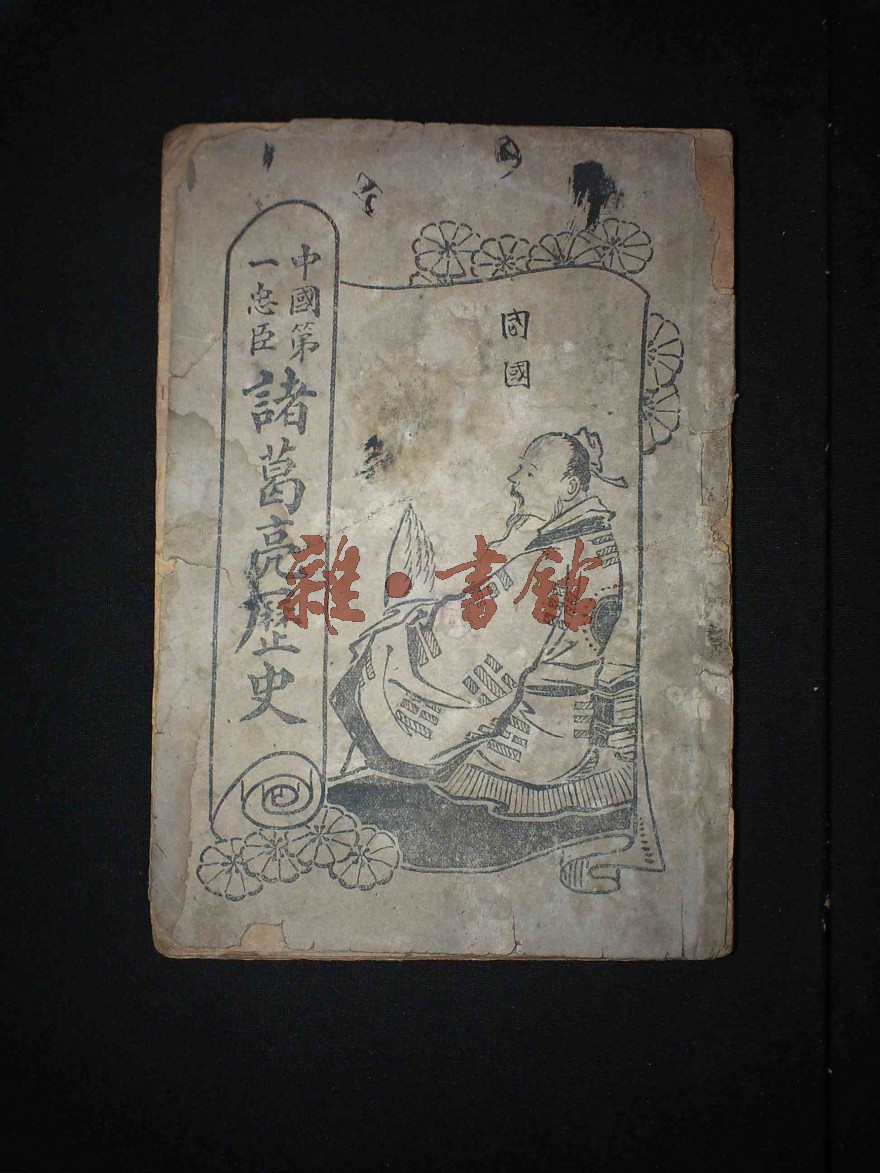 國
中國第
一忠臣
諸葛亮歷史
雜·書館